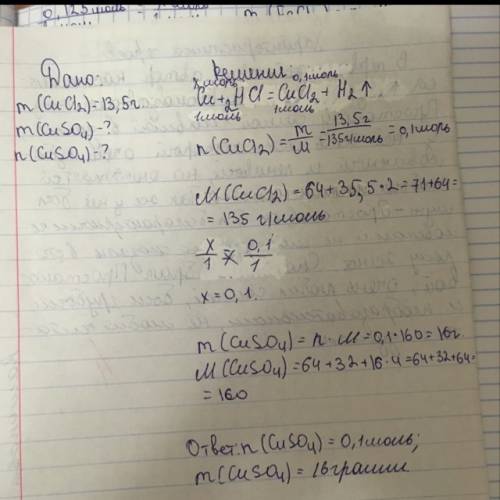 0,125 моль
Дано:
m(CuCl2)=13,5г
m(CuSO4)-?
n(CuSO4)-?
Решение
x моль 0,1 моль
Cu+2HCl=CuCl2+H2↑
1 моль 1 моль
n(CuCl2)=m/M=13,5г/135г/моль=0,1 моль
M(CuCl2)=64+35,5·2=71+64=
=135 г/моль
x/1 = 0,1/1
x=0,1
m(CuSO4)=n·M=0,1·160=16г
M(CuSO4)=64+32+16·4=64+32+64=
=160
Ответ: n(CuSO4)=0,1 моль;
m(CuSO4)=16 грамм